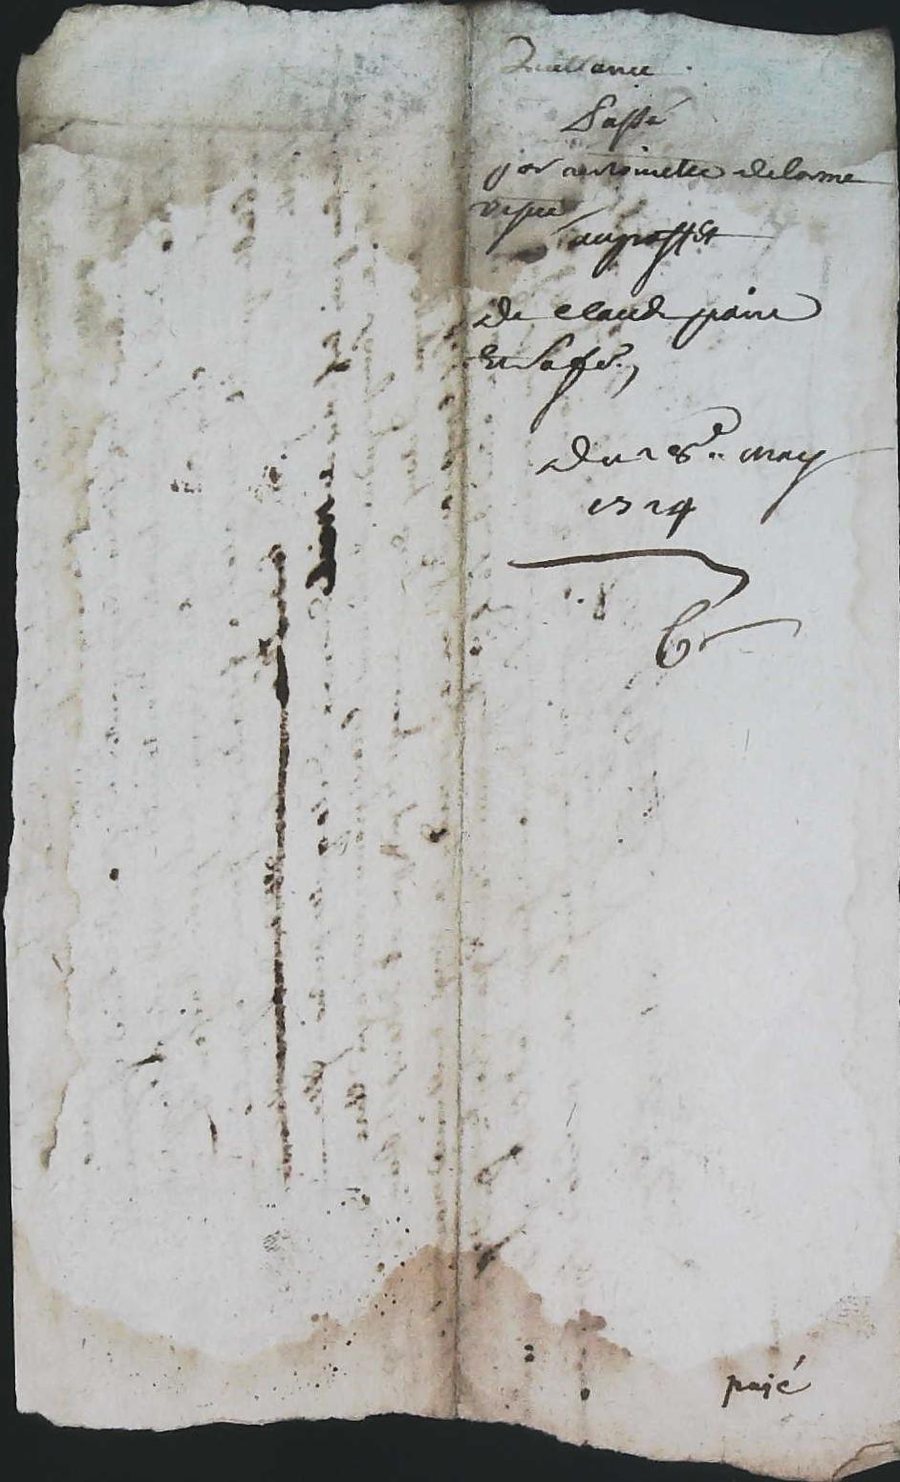 Quittance
Passé
par antoinette delorme
vefue
au proffit
de claude paire
Et Sa fe.,
du 28e.. may
1724
payé